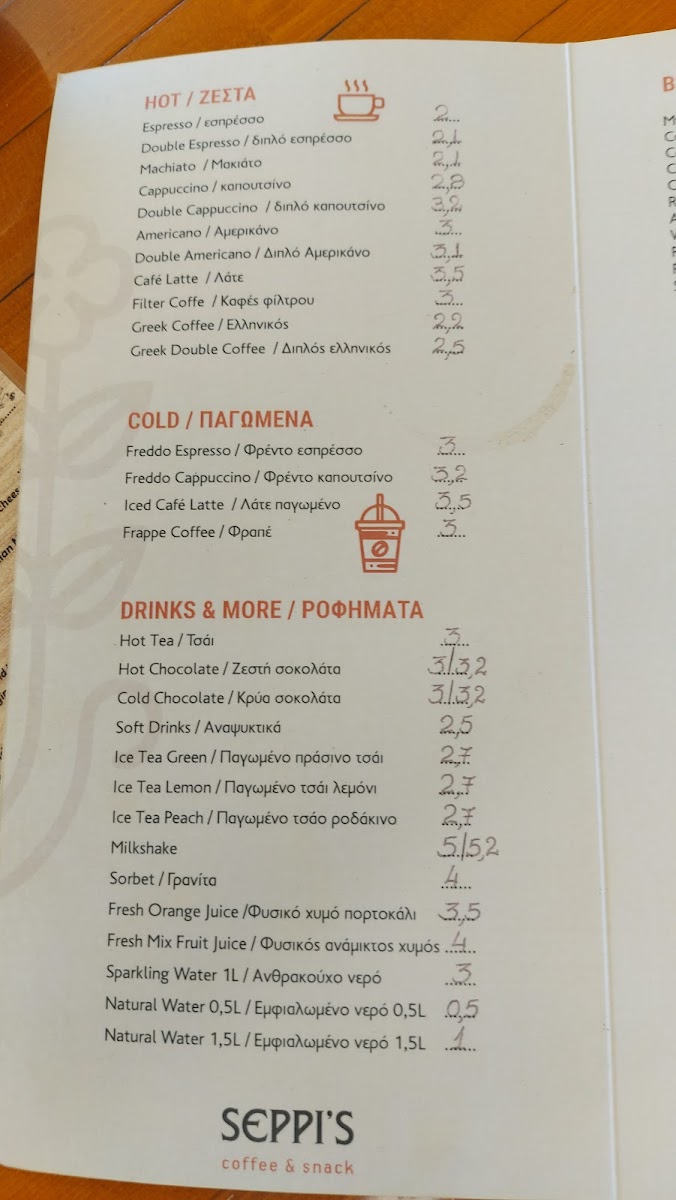 HOT / ΖΕΣΤΑ
Espresso / εσπρέσσο 2
Double Espresso / διπλό εσπρέσσο 2,1
Machiato / Μακιάτο 2,1
Cappuccino / καπουτσίνο 2,8
Double Cappuccino / διπλό καπουτσίνο 3,2
Americano / Αμερικάνο 3
Double Americano / Διπλό Αμερικάνο 3,1
Café Latte / Λάτε 3,5
Filter Coffe / Καφές φίλτρου 3
Greek Coffee / Ελληνικός 2,2
Greek Double Coffee / Διπλός ελληνικός 2,5
COLD / ΠΑΓΩΜΕΝΑ
Freddo Espresso / Φρέντο εσπρέσσο 3
Freddo Cappuccino / Φρέντο καπουτσίνο 3,2
Iced Café Latte / Λάτε παγωμένο 3,5
Frappe Coffee / Φραπέ 3
DRINKS & MORE / ΡΟΦΗΜΑΤΑ
Hot Tea / Τσάι 3
Hot Chocolate / Ζεστή σοκολάτα 3/3,2
Cold Chocolate / Κρύα σοκολάτα 3/3,2
Soft Drinks / Αναψυκτικά 2,5
Ice Tea Green / Παγωμένο πράσινο τσάι 2,7
Ice Tea Lemon / Παγωμένο τσάι λεμόνι 2,7
Ice Tea Peach / Παγωμένο τσάο ροδάκινο 2,7
Milkshake 5/5,2
Sorbet / Γρανίτα 4
Fresh Orange Juice /Φυσικό χυμό πορτοκάλι 3,5
Fresh Mix Fruit Juice / Φυσικός ανάμικτος χυμός 4
Sparkling Water 1L / Ανθρακούχο νερό 3
Natural Water 0,5L / Εμφιαλωμένο νερό 0,5L 0,5
Natural Water 1,5L / Εμφιαλωμένο νερό 1,5L 1
SEPPI'S
coffee & snack